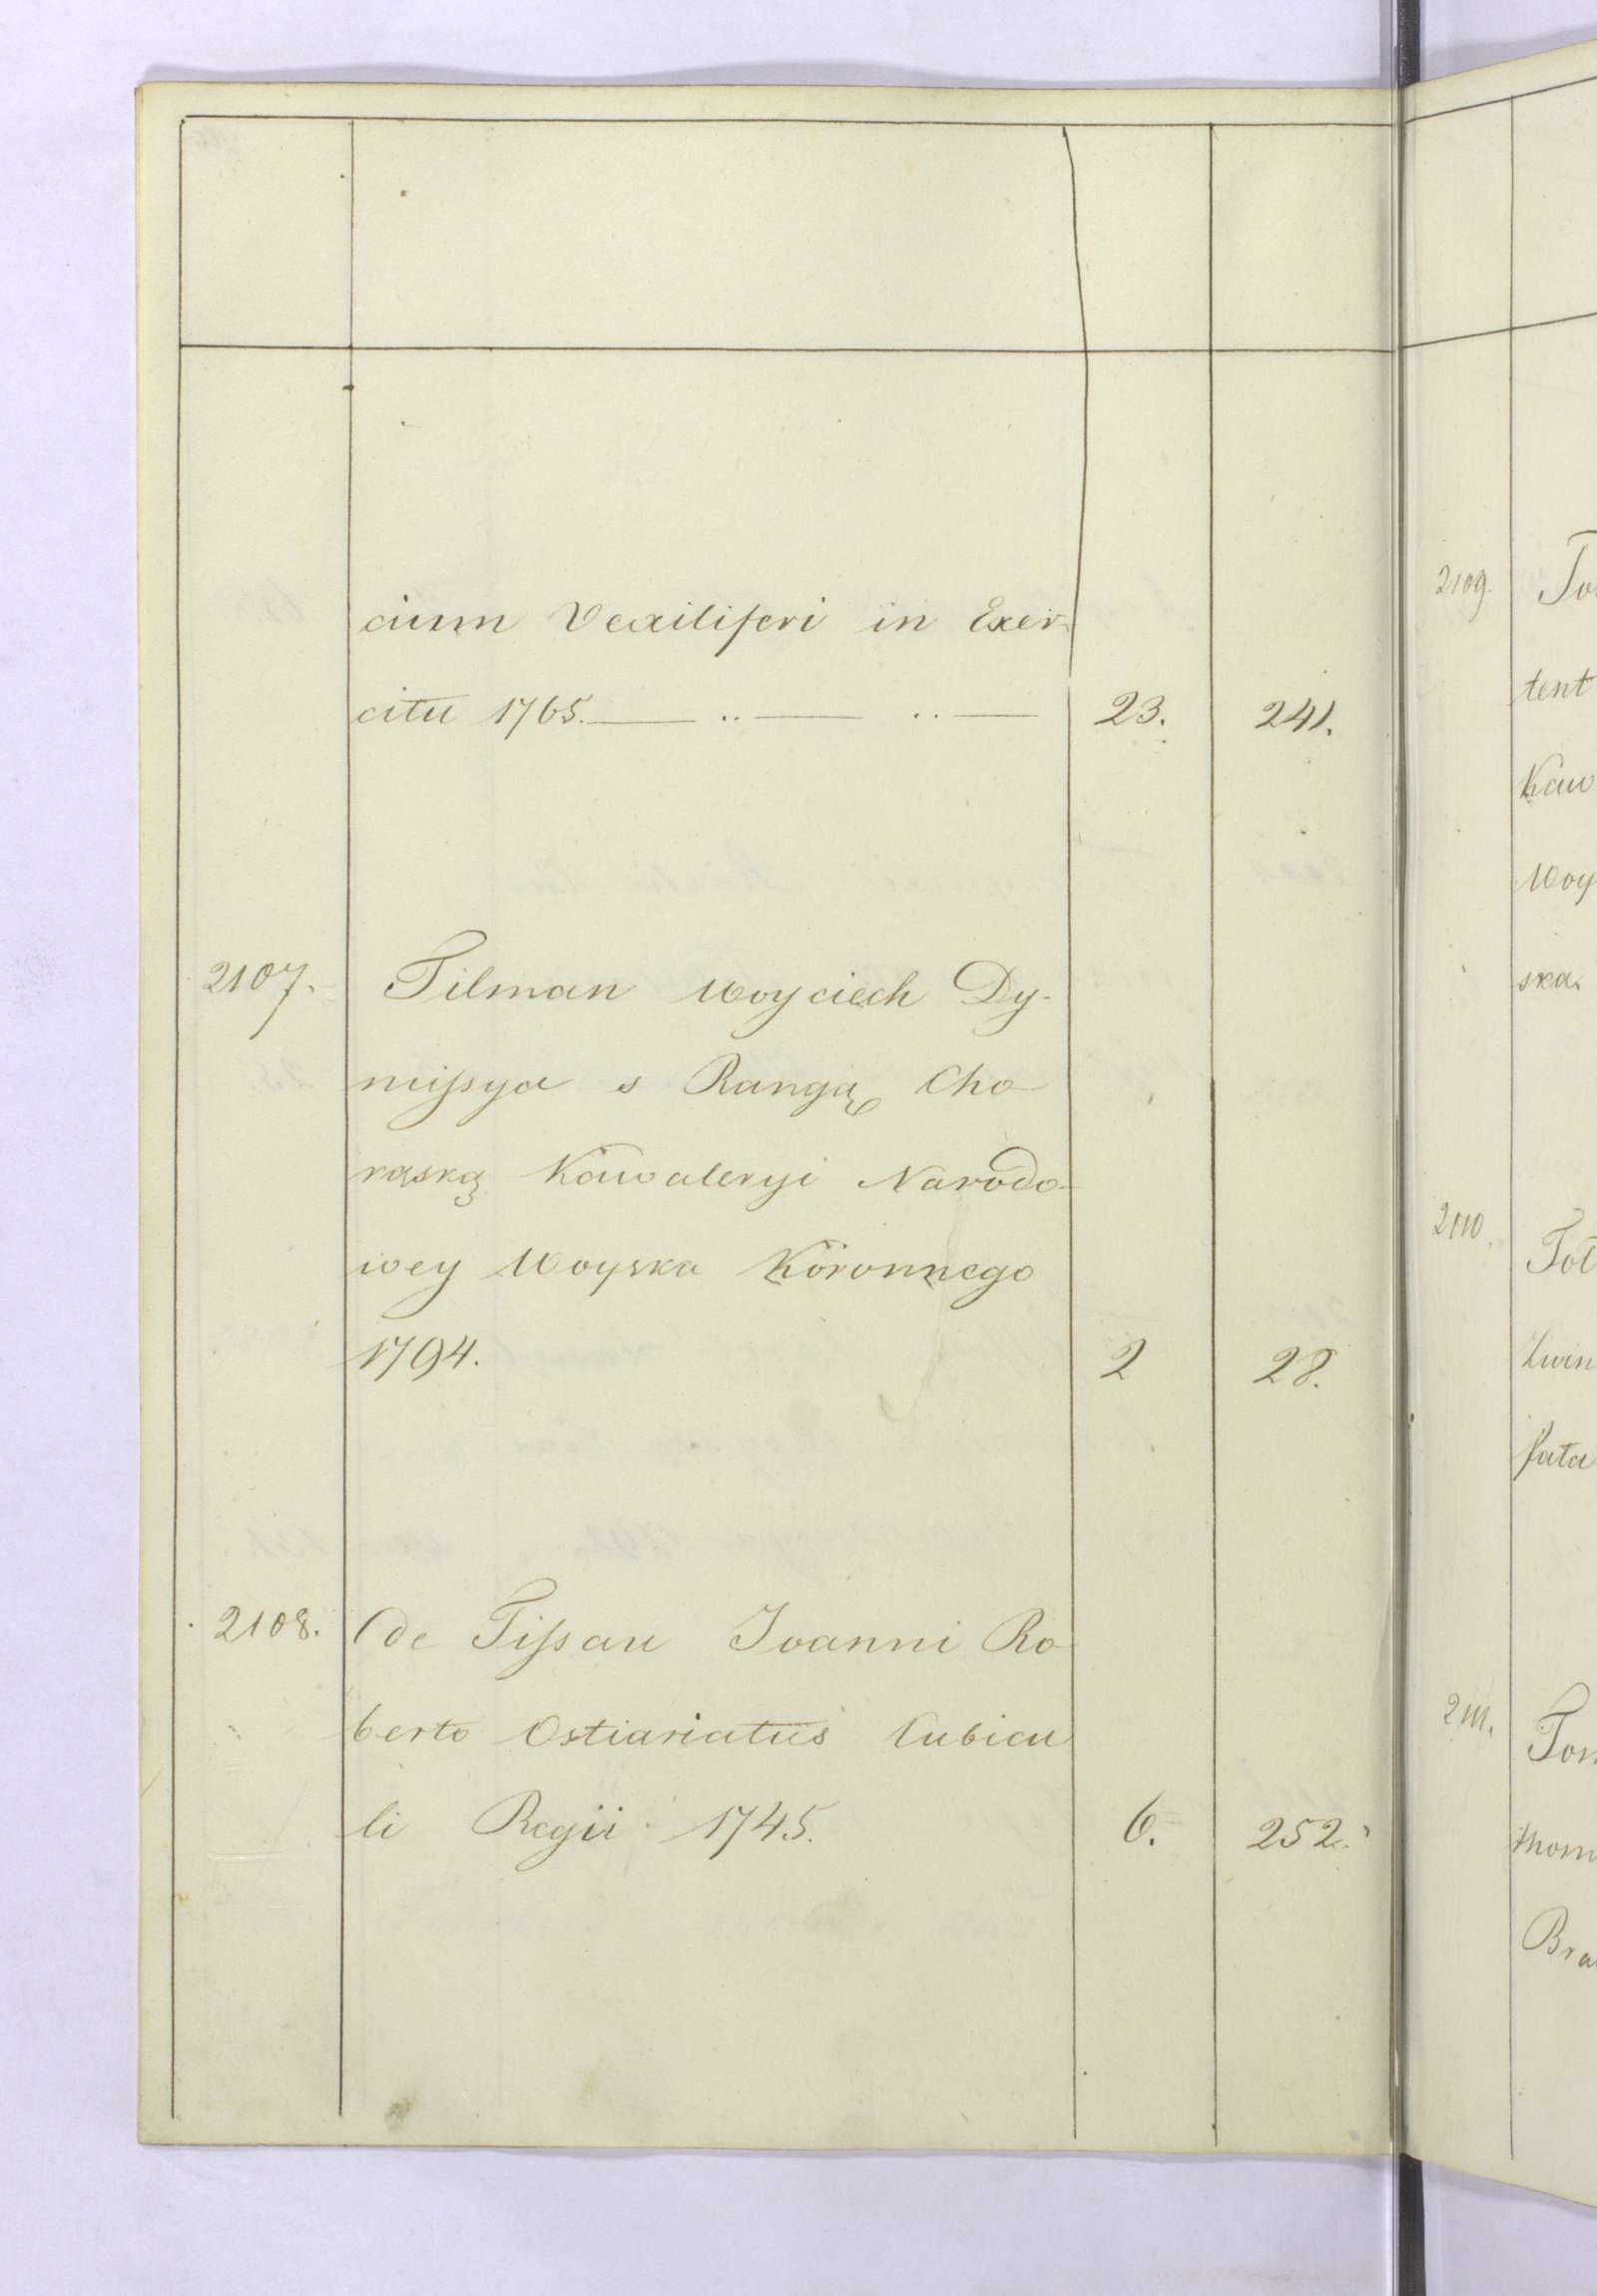 cium Vexiliferi in Exer-
citu 1765. — .. — .. — 23. 241.
2107. Tilman Woyciech Dy-
missya s Rangą Cho
rąską Kawaleryi Narodo-
wey Woyska Koronnego
1794. 2 28.
2108. de Tissau Joanni Ro
berto Ostiariatus Cubicu
li Regii 1745. 6. 252.
2109. To
tent
Kaw
Woy
ska
2110. Tot
fata
2111. Tom
Bra